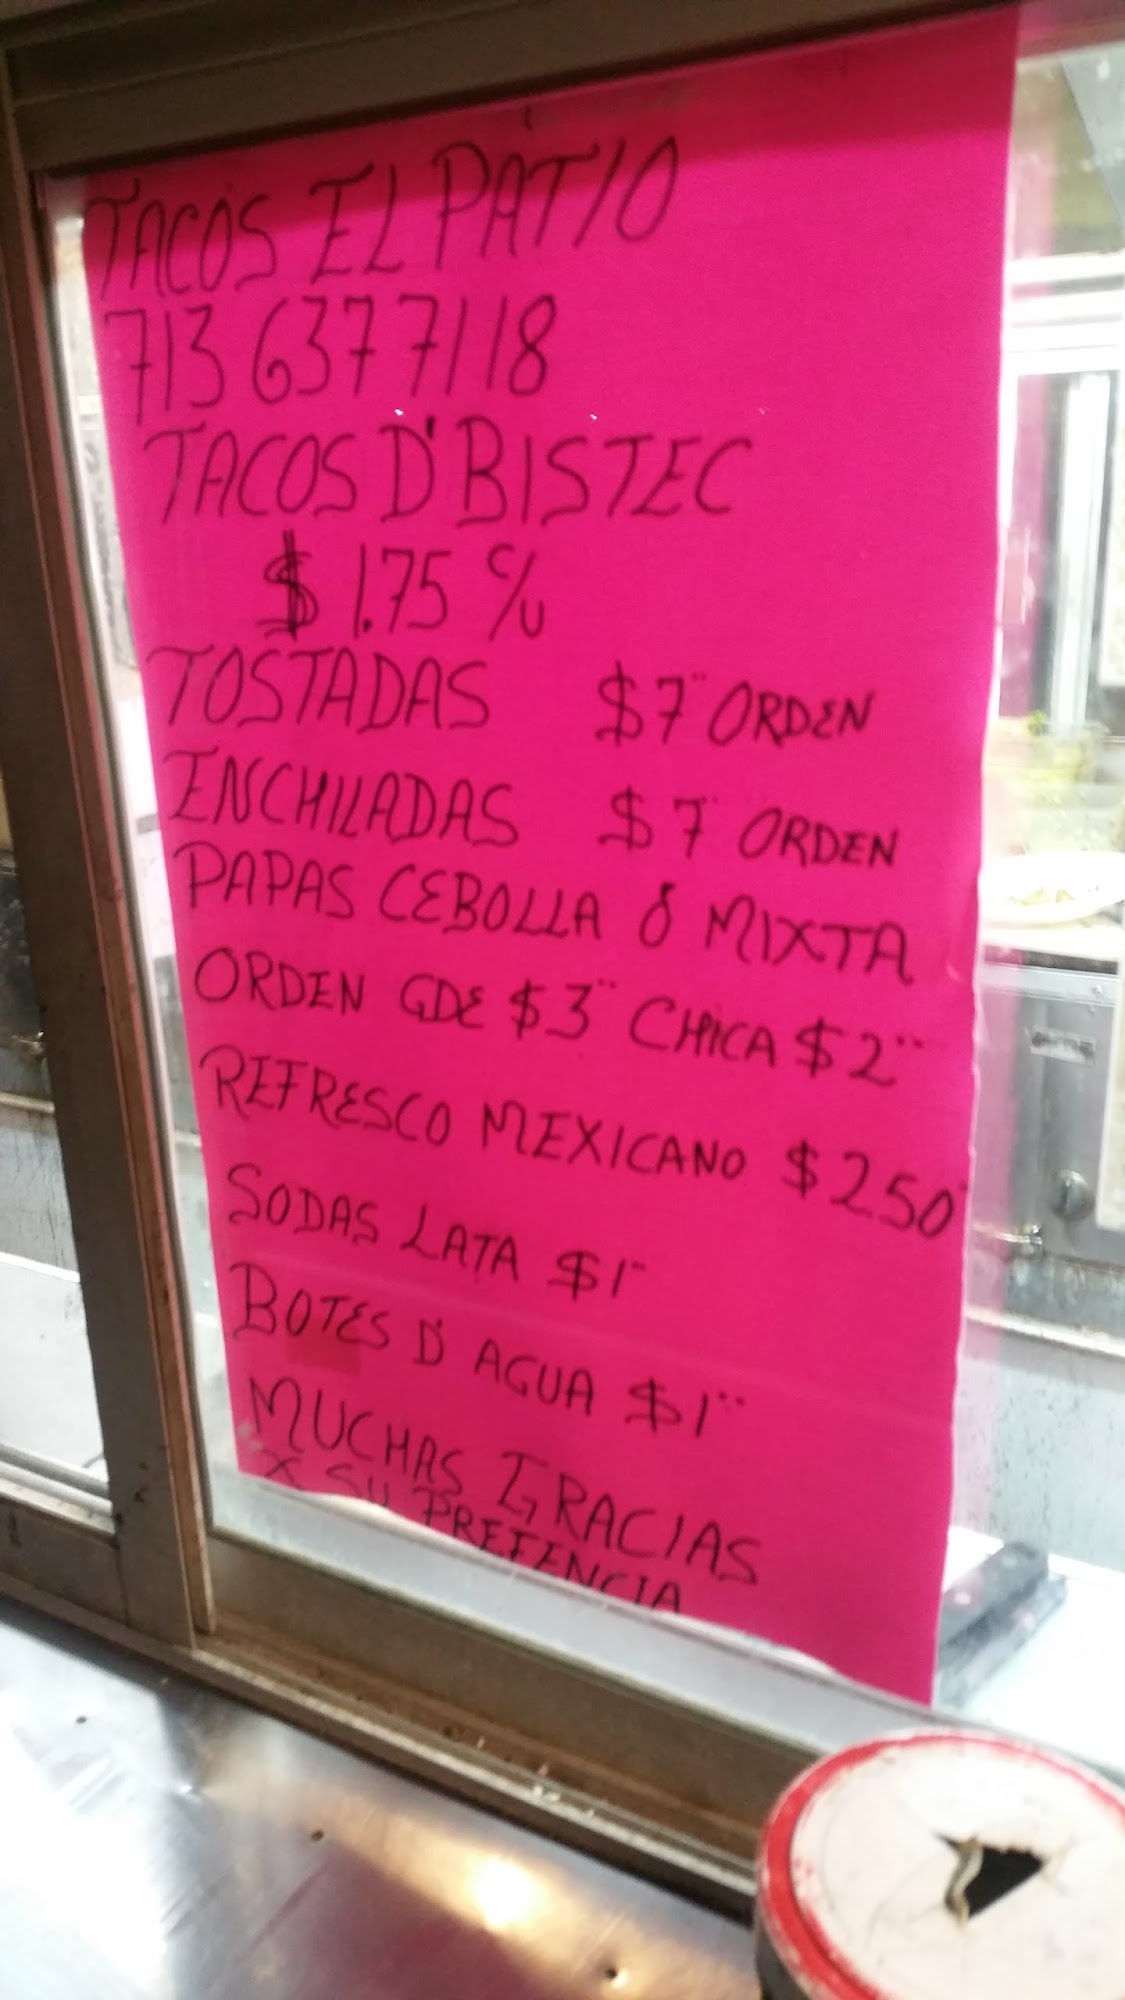 TACOS EL PATIO
713 637 7118
TACOS D'BISTEC
$1.75 c/u
TOSTADAS $7" ORDEN
ENCHILADAS $7" ORDEN
PAPAS CEBOLLA ó MIXTA
ORDEN GDE $3" CHICA $2"
REFRESCO MEXICANO $250
SODAS LATA $1"
BOTES D' AGUA $1"
MUCHAS GRACIAS
X SU PREFENCIA